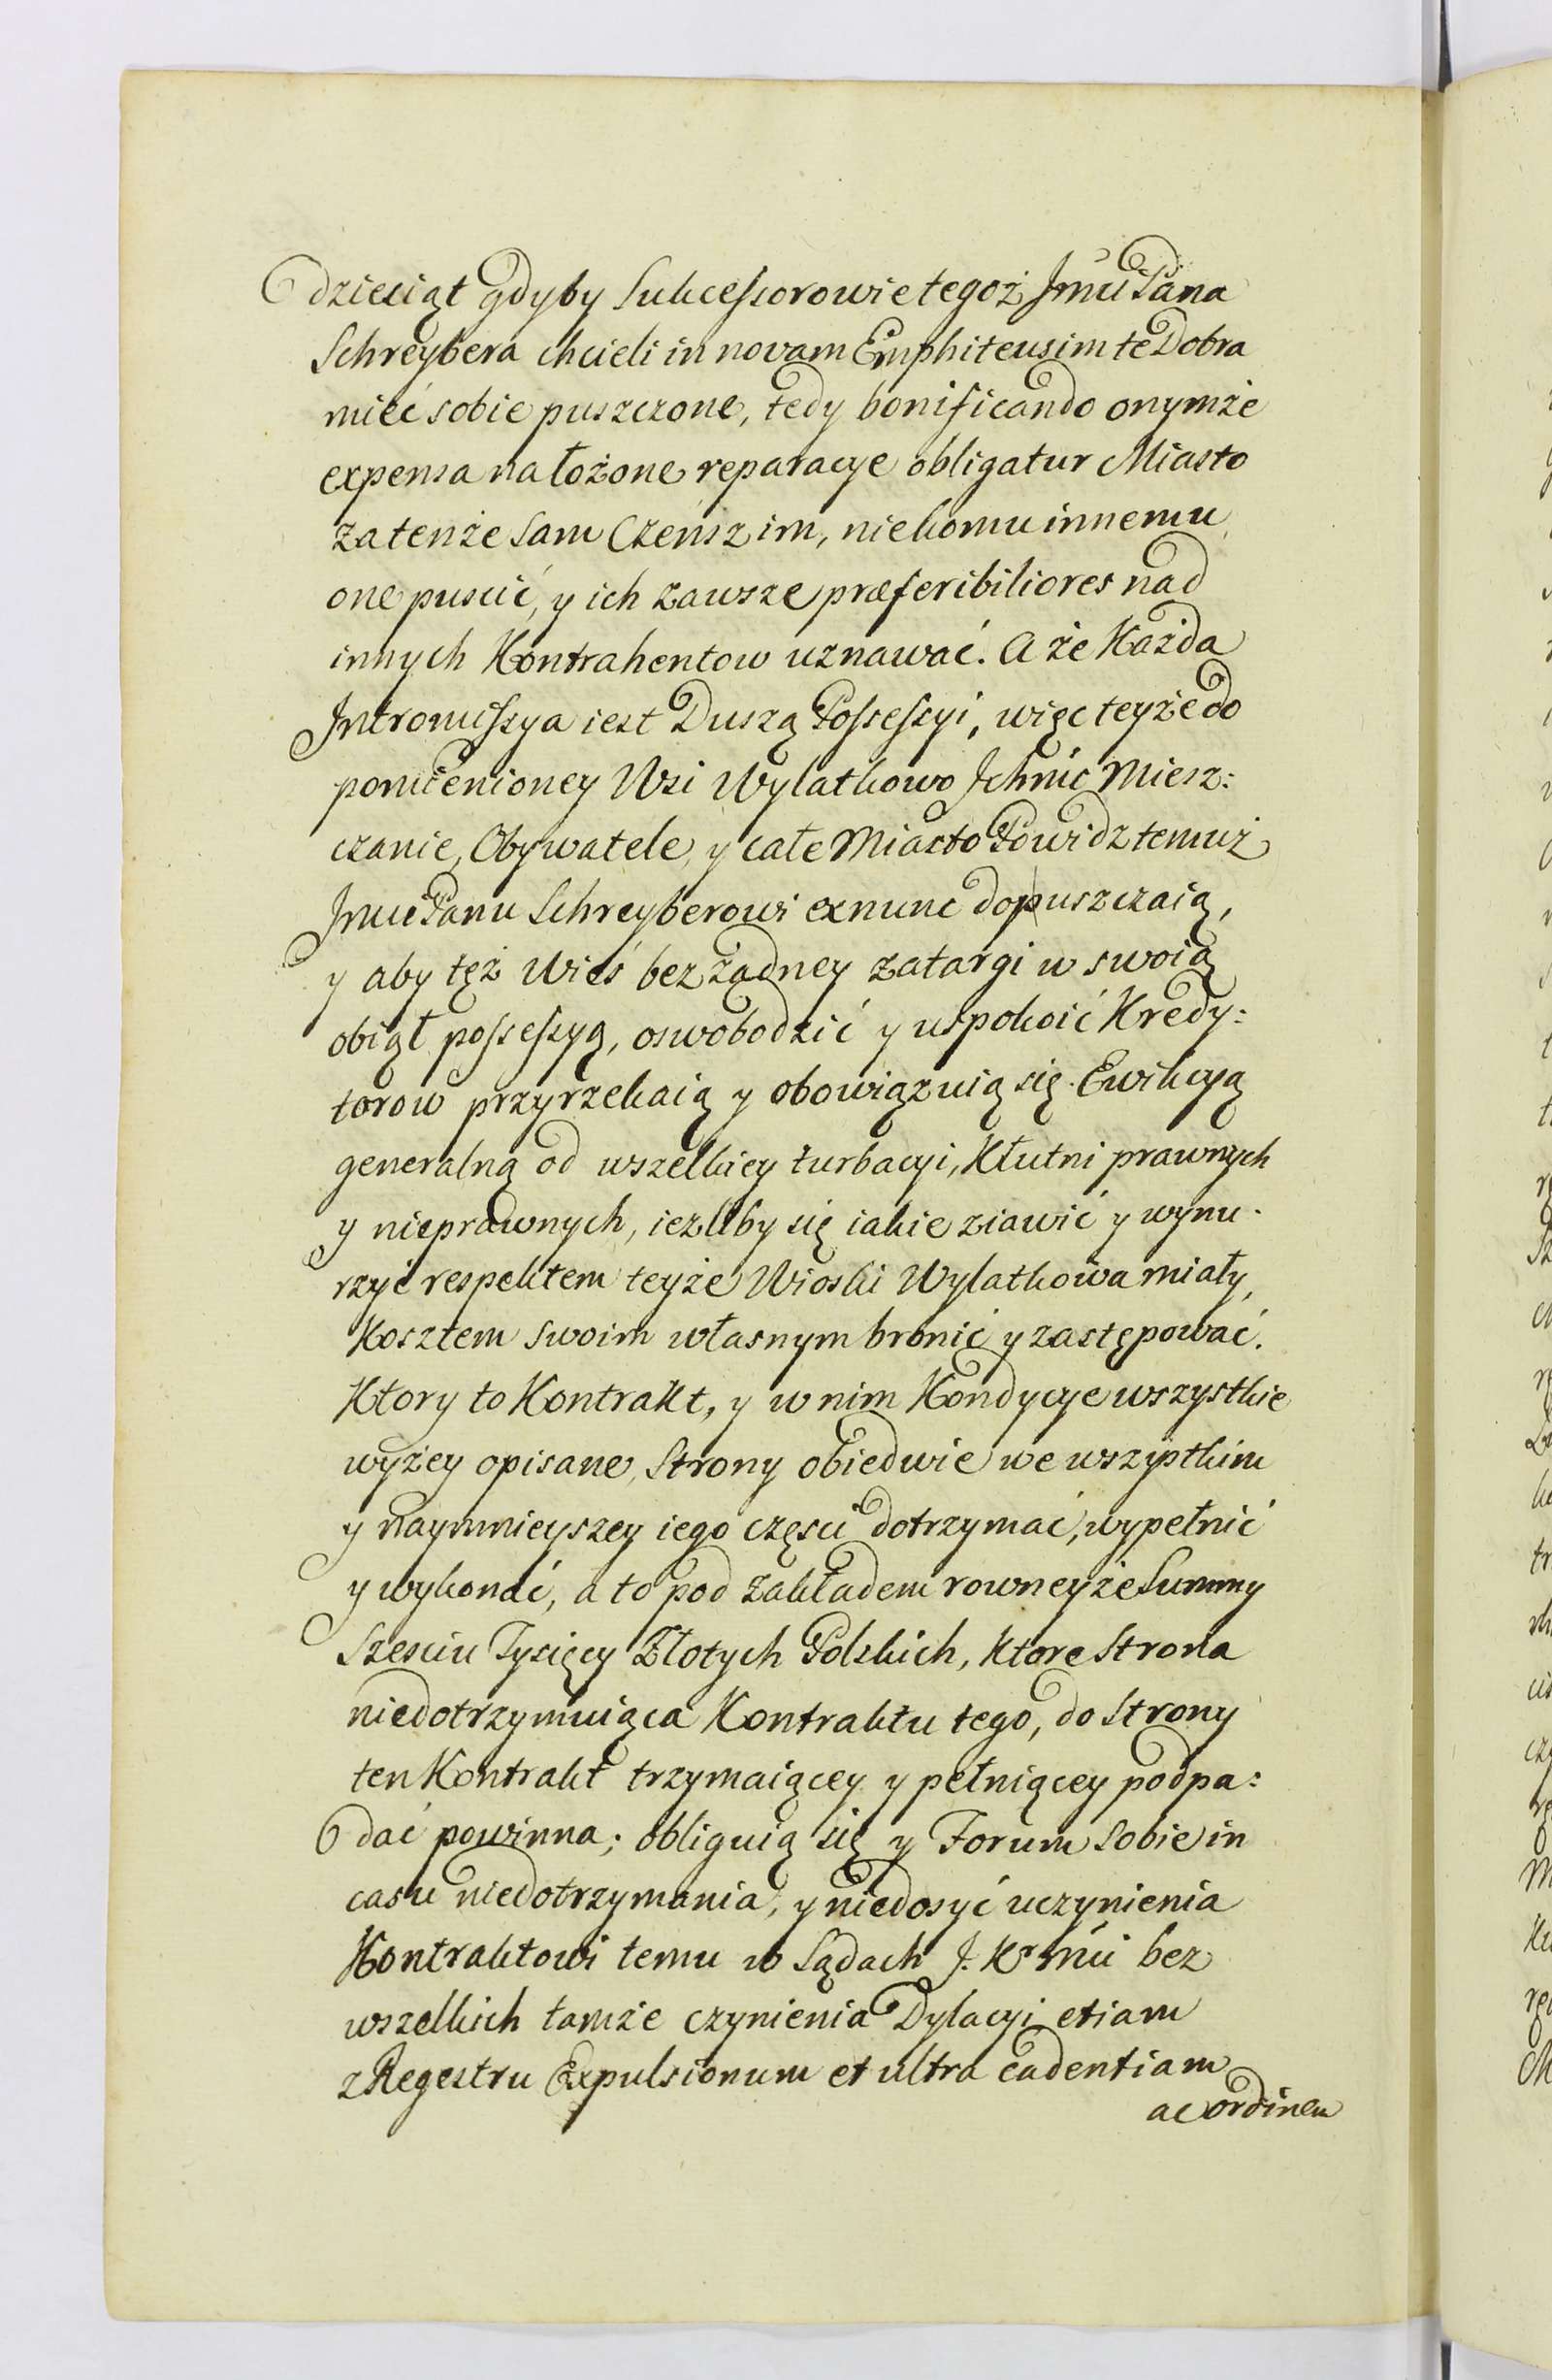 dziesiąt gdyby Sukcessorowie tegoż Jmci Pana
Schreybera chcieli in novam Emphiteusim te Dobra
mieć sobie puszczone, tedy bonificando onymże
expensa nałożone reparacye obligatur Miasto
za tenże sam Czensz im, niekomu innemu
one puscić, y ich zawsze præferibiliores nad
innych Kontrahentow uznawać. A że Każda
Intromissya iest Duszą Possessyi, więc teyże do
pomienioney Wsi Wylatkowo Ichmć Miesz:
czanie, Obywatele, y całe Miasto Powidz temuż
Jmci Panu Schreyberowi ex nunc dopuszczaią,
y aby tęż Wieś bez żadney zatargi w swoią
obiął possessyą, oswobodzić y uspokoić Kredy:
torow przyrzekaią y obowiązuią się. Ewikcyą
generalną od wszelkiey turbacyi, Kłutni prawnych
y nieprawnych, ieżliby się iakie ziawić y wynu-
rzyć respektem teyże Wioski Wylatkowa miały,
Kosztem swoim własnym bronić y zastępować.
Ktory to Kontrakt, y w nim Kondycye wszystkie
wyżey opisane, Strony obiedwie we wszystkim
y naymnieyszey iego części dotrzymać, wypełnić
y wykonać, a to pod zakładem rowneyże Summy
Szesciu Tysięcy Złotych Polskich, ktore Strona
niedotrzymuiąca Kontraktu tego, do Strony
ten Kontrakt trzymaiącey y pełniącey podpa:
dać powinna; obliguią się y Forum sobie in
casu niedotrzymania, y niedosyć uczynienia
Kontraktowi temu w Sądach J. Kr Mci bez
wszelkich tamże czynienia Dylacyi etiam
z Regestru Expulsionum et ultra cadentiam
ac ordinem